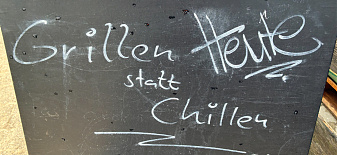 Grillen Heute
statt
Chillen